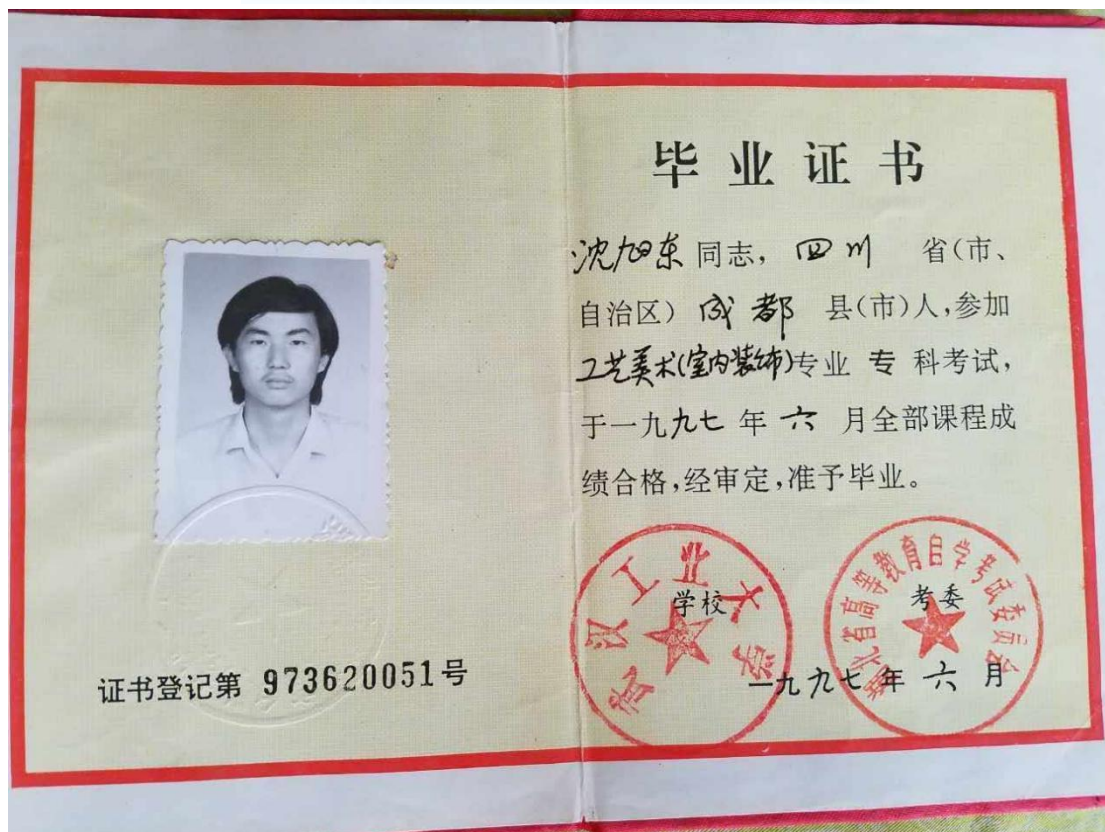 毕业证书
沈旭东同志，四川 省（市、
自治区）成都 县（市）人，参加
工艺美术（室内装饰）专业 专 科考试，
于一九九七年 六 月全部课程成
绩合格，经审定，准予毕业。
武汉工业大学
学校
湖北省高等教育自学考试委员会
考委
一九九七年六月
证书登记第 973620051号